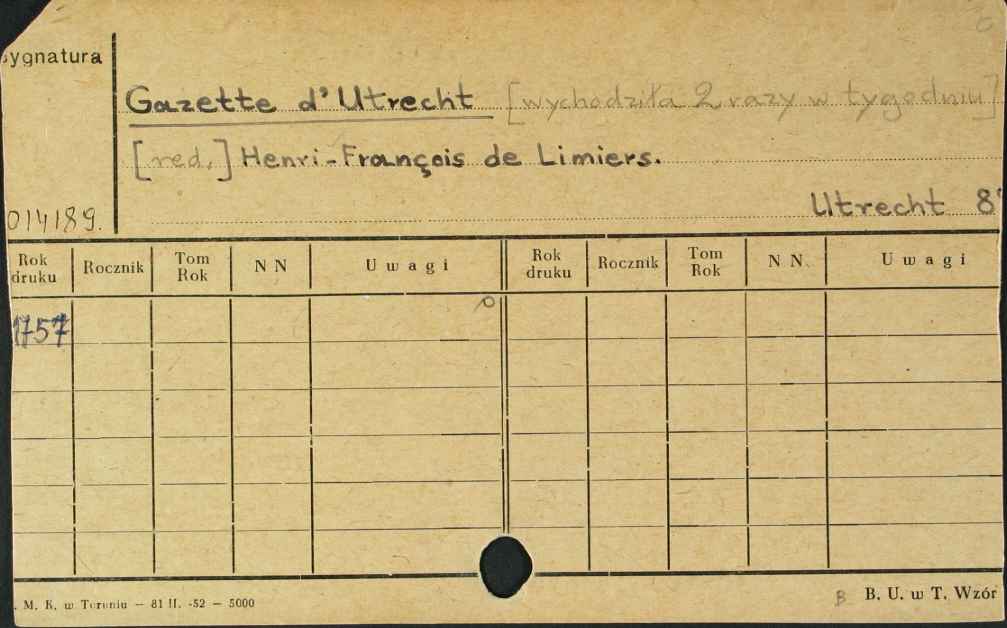 ygnatura
Gazette d'Utrecht [wychodziła 2 razy w tygodniu]
[red.] Henri-François de Limiers.
014189.
Utrecht 8°
Rok druku Rocznik Tom Rok NN Uwagi Rok druku Rocznik Tom Rok NN. Uwagi
1757
. M. K. w Toruniu — 81 II. -52 — 5000
B B. U. w T. Wzór